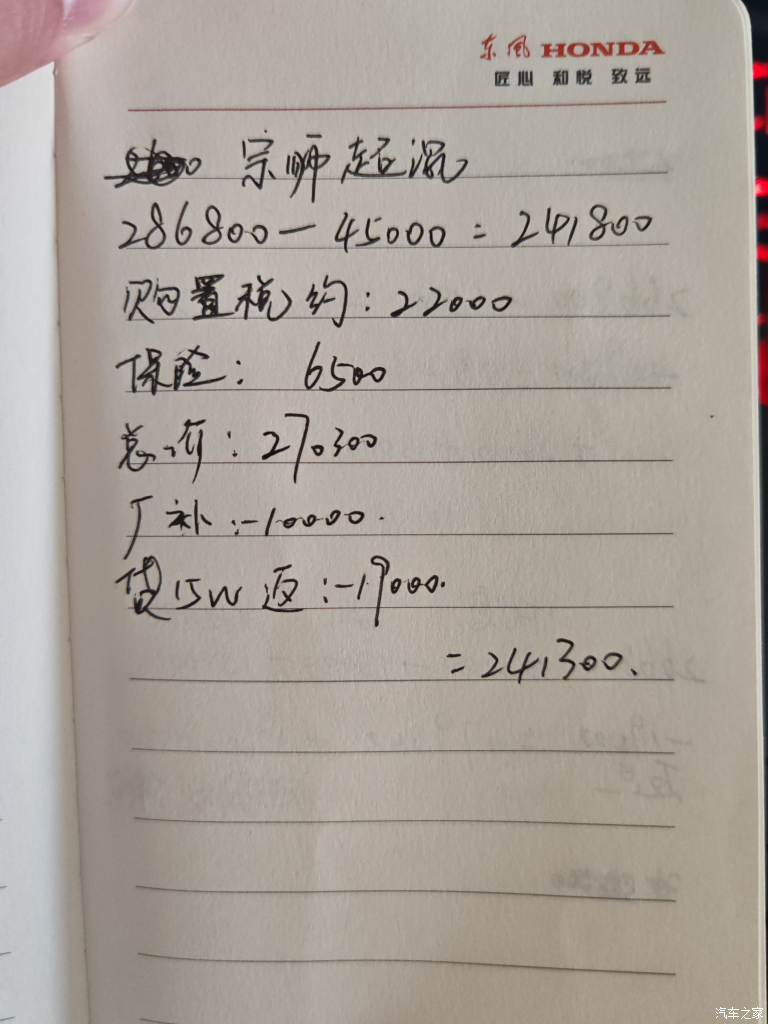 东风 HONDA
匠心 和悦 致远
宗师超混
286800-45000=241800
购置税约:22000
保险: 6500
总价:270300
厂补:-10000.
贷15W返:-19000.
=241300.
汽车之家